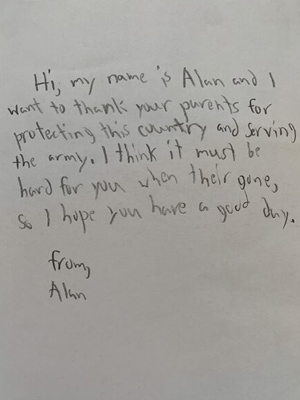 Hi, my name is Alan and I
want to thank your parents for
protecting this country and serving
the army. I think it must be
hard for you when their gone,
so I hope you have a good day.
from,
Alan